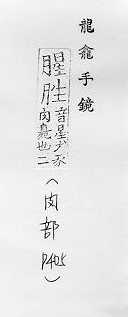 龍龕手鏡
腥胜音星犬豕肉臭也二(肉部 P405)